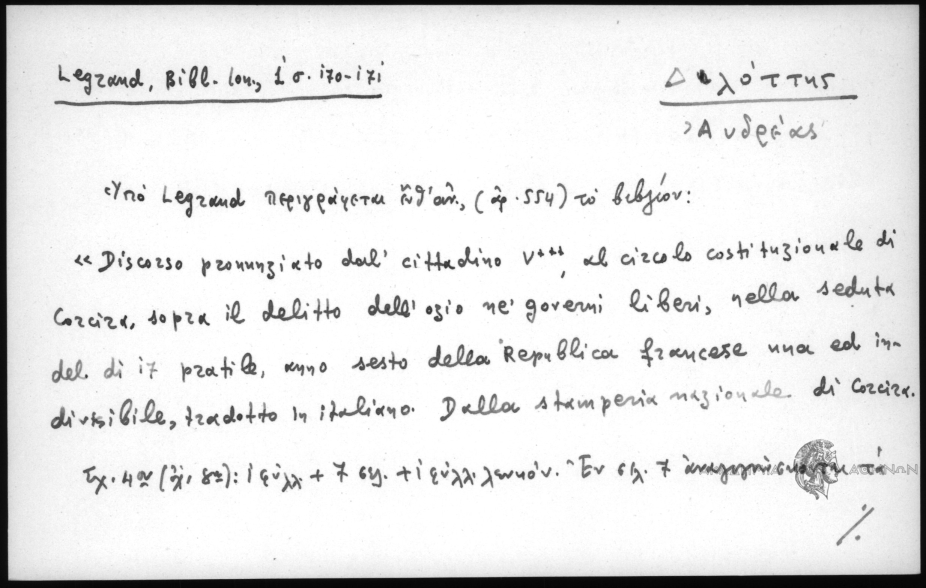 Legrand, Bibl. Ion., 1 σ. 170-171
Δελόττης
Ἀνδρέας
Ὑπό Legrand περιγράφεται ὑπ' ἀρ., (ἀρ. 554) τό βιβλίον:
«Discorso pronunziato dal' cittadino V***, al circolo costituzionale di
Corcira, sopra il delitto dell' ozio ne' governi liberi, nella seduta
del dì 17 pratile, anno sesto della Republica francese una ed in-
divisibile, tradotto in italiano. Dalla stamperia nazionale di Corcira.
Σχ. 4ον (ὄχι 8ον): 1 φύλλ. + 7 σελ. + 1 φύλλ. λευκόν. Ἐν σελ. 7 ἀναγιγνώσκονται τά
%